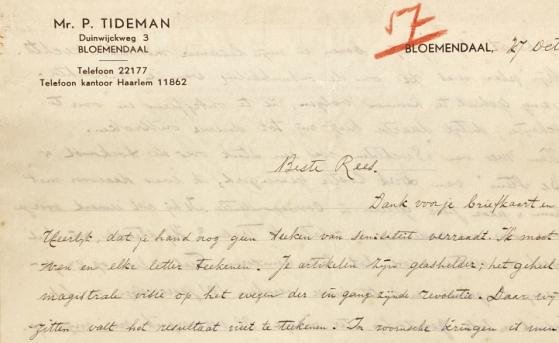 Mr. P. TIDEMAN
Duinwijckweg 3
BLOEMENDAAL
Telefoon 22177
Telefoon kantoor Haarlem 11862
57
BLOEMENDAAL, 27 Oct
Beste Rees.
Dank voor je briefkaart en
Heerlijk, dat je hand nog geen teeken van seniliteit verraadt. Ik moet
en elke letter teekenen. Je artikelen zijn glashelder; het geheel
magistrale visie op het wezen der in gang zijnde revolutie. Daar wij
zitten valt het resultaat niet te teekenen. In roomsche kringen is men